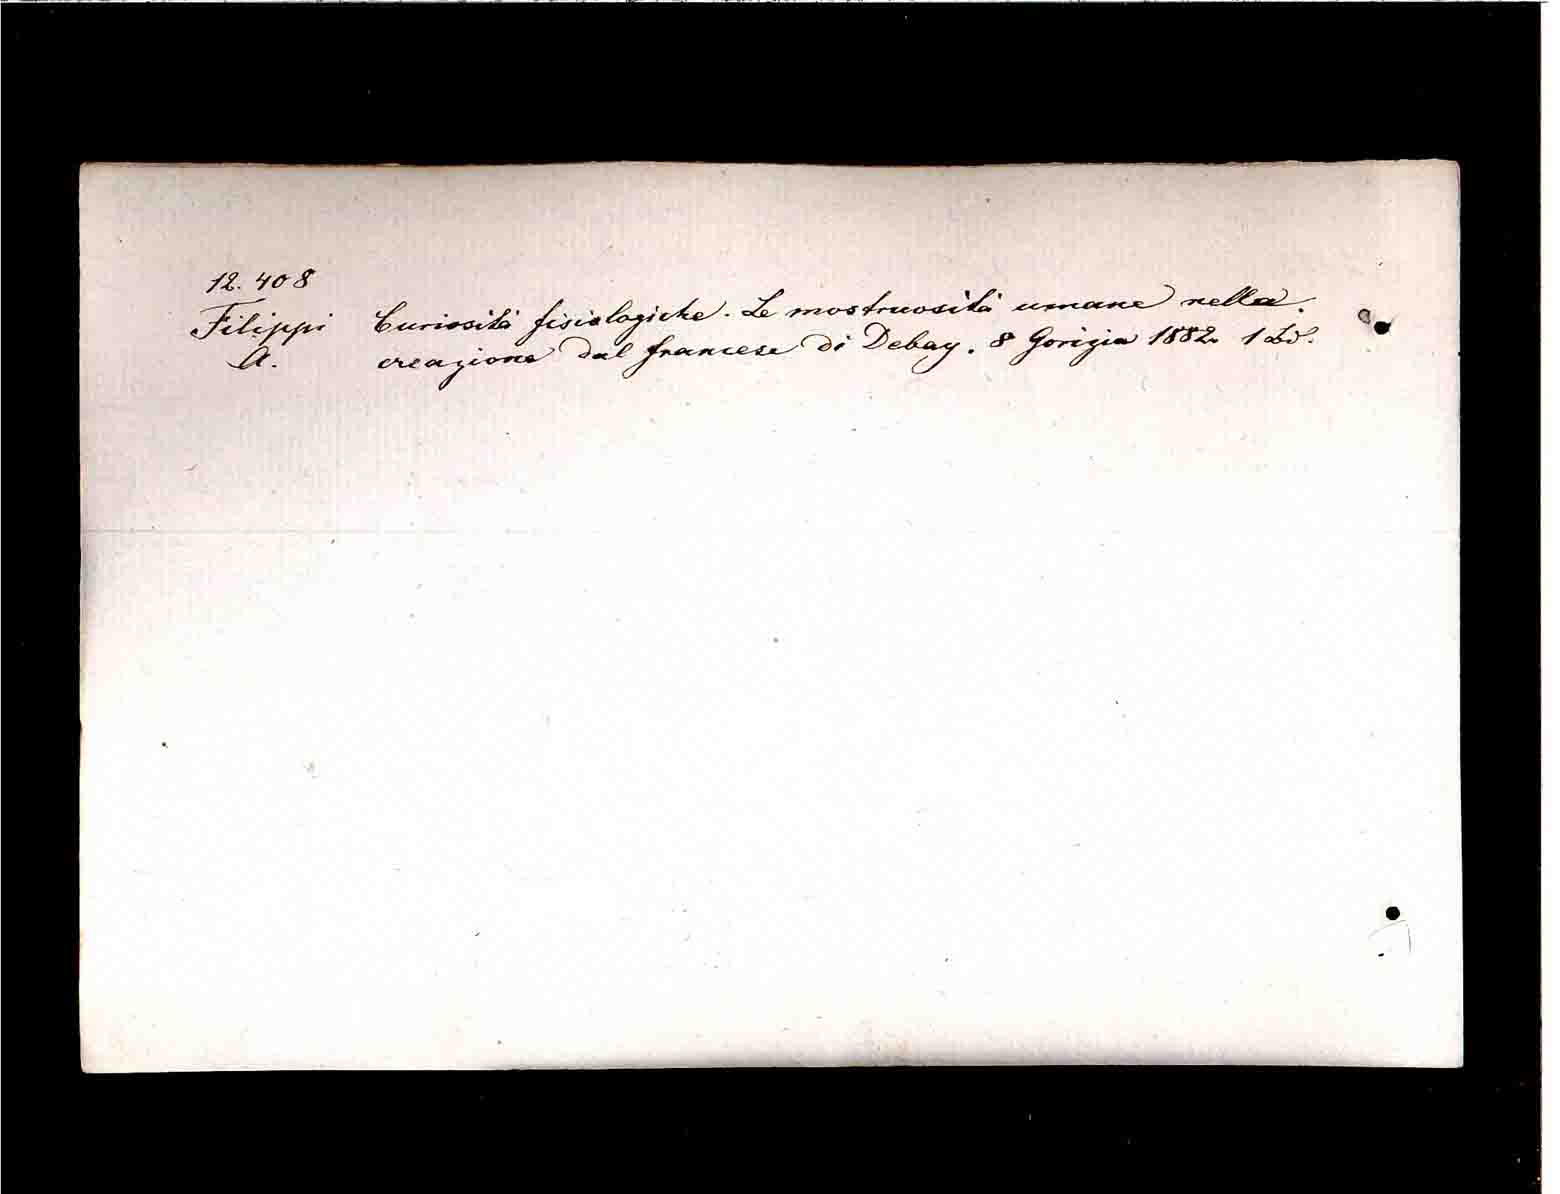 12. 408
Filippi Curiosità fisiologiche. Le mostruosità umane nella
A. creazione dal francese di Debay. 8 Gorizia 1882. 1 Bd.